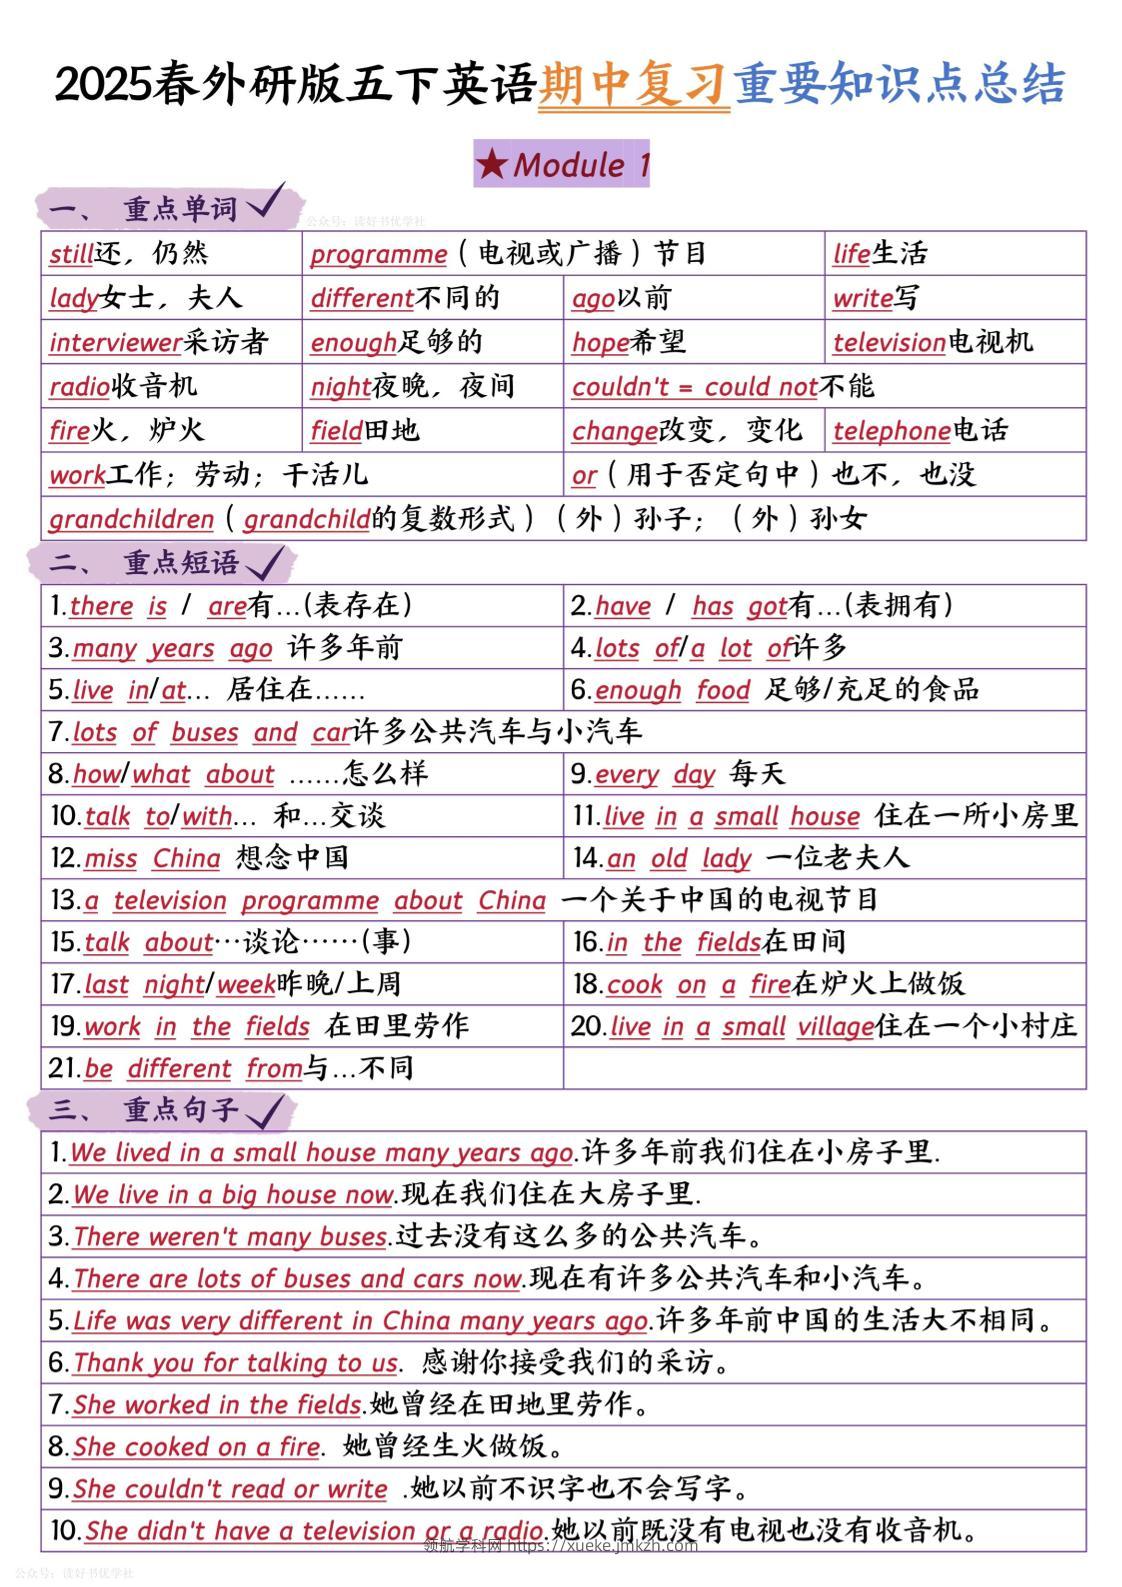 2025春外研版五下英语期中复习重要知识点总结
★Module 1
一、 重点单词
公众号：读好书优学社
still还，仍然 programme（电视或广播）节目 life生活
lady女士，夫人 different不同的 ago以前 write写
interviewer采访者 enough足够的 hope希望 television电视机
radio收音机 night夜晚，夜间 couldn't = could not不能
fire火，炉火 field田地 change改变，变化 telephone电话
work工作；劳动；干活儿 or（用于否定句中）也不，也没
grandchildren（grandchild的复数形式）（外）孙子；（外）孙女
二、 重点短语
1.there is / are有…(表存在) 2.have / has got有…(表拥有)
3.many years ago 许多年前 4.lots of/a lot of许多
5.live in/at… 居住在…… 6.enough food 足够/充足的食品
7.lots of buses and car许多公共汽车与小汽车
8.how/what about ……怎么样 9.every day 每天
10.talk to/with… 和…交谈 11.live in a small house 住在一所小房里
12.miss China 想念中国 14.an old lady 一位老夫人
13.a television programme about China 一个关于中国的电视节目
15.talk about…谈论……(事) 16.in the fields在田间
17.last night/week昨晚/上周 18.cook on a fire在炉火上做饭
19.work in the fields 在田里劳作 20.live in a small village住在一个小村庄
21.be different from与…不同
三、 重点句子
1.We lived in a small house many years ago.许多年前我们住在小房子里.
2.We live in a big house now.现在我们住在大房子里.
3.There weren't many buses.过去没有这么多的公共汽车。
4.There are lots of buses and cars now.现在有许多公共汽车和小汽车。
5.Life was very different in China many years ago.许多年前中国的生活大不相同。
6.Thank you for talking to us. 感谢你接受我们的采访。
7.She worked in the fields.她曾经在田地里劳作。
8.She cooked on a fire. 她曾经生火做饭。
9.She couldn't read or write .她以前不识字也不会写字。
10.She didn't have a television or a radio.她以前既没有电视也没有收音机。
领航学科网 https://xueke.jmkzh.com
公众号：读好书优学社